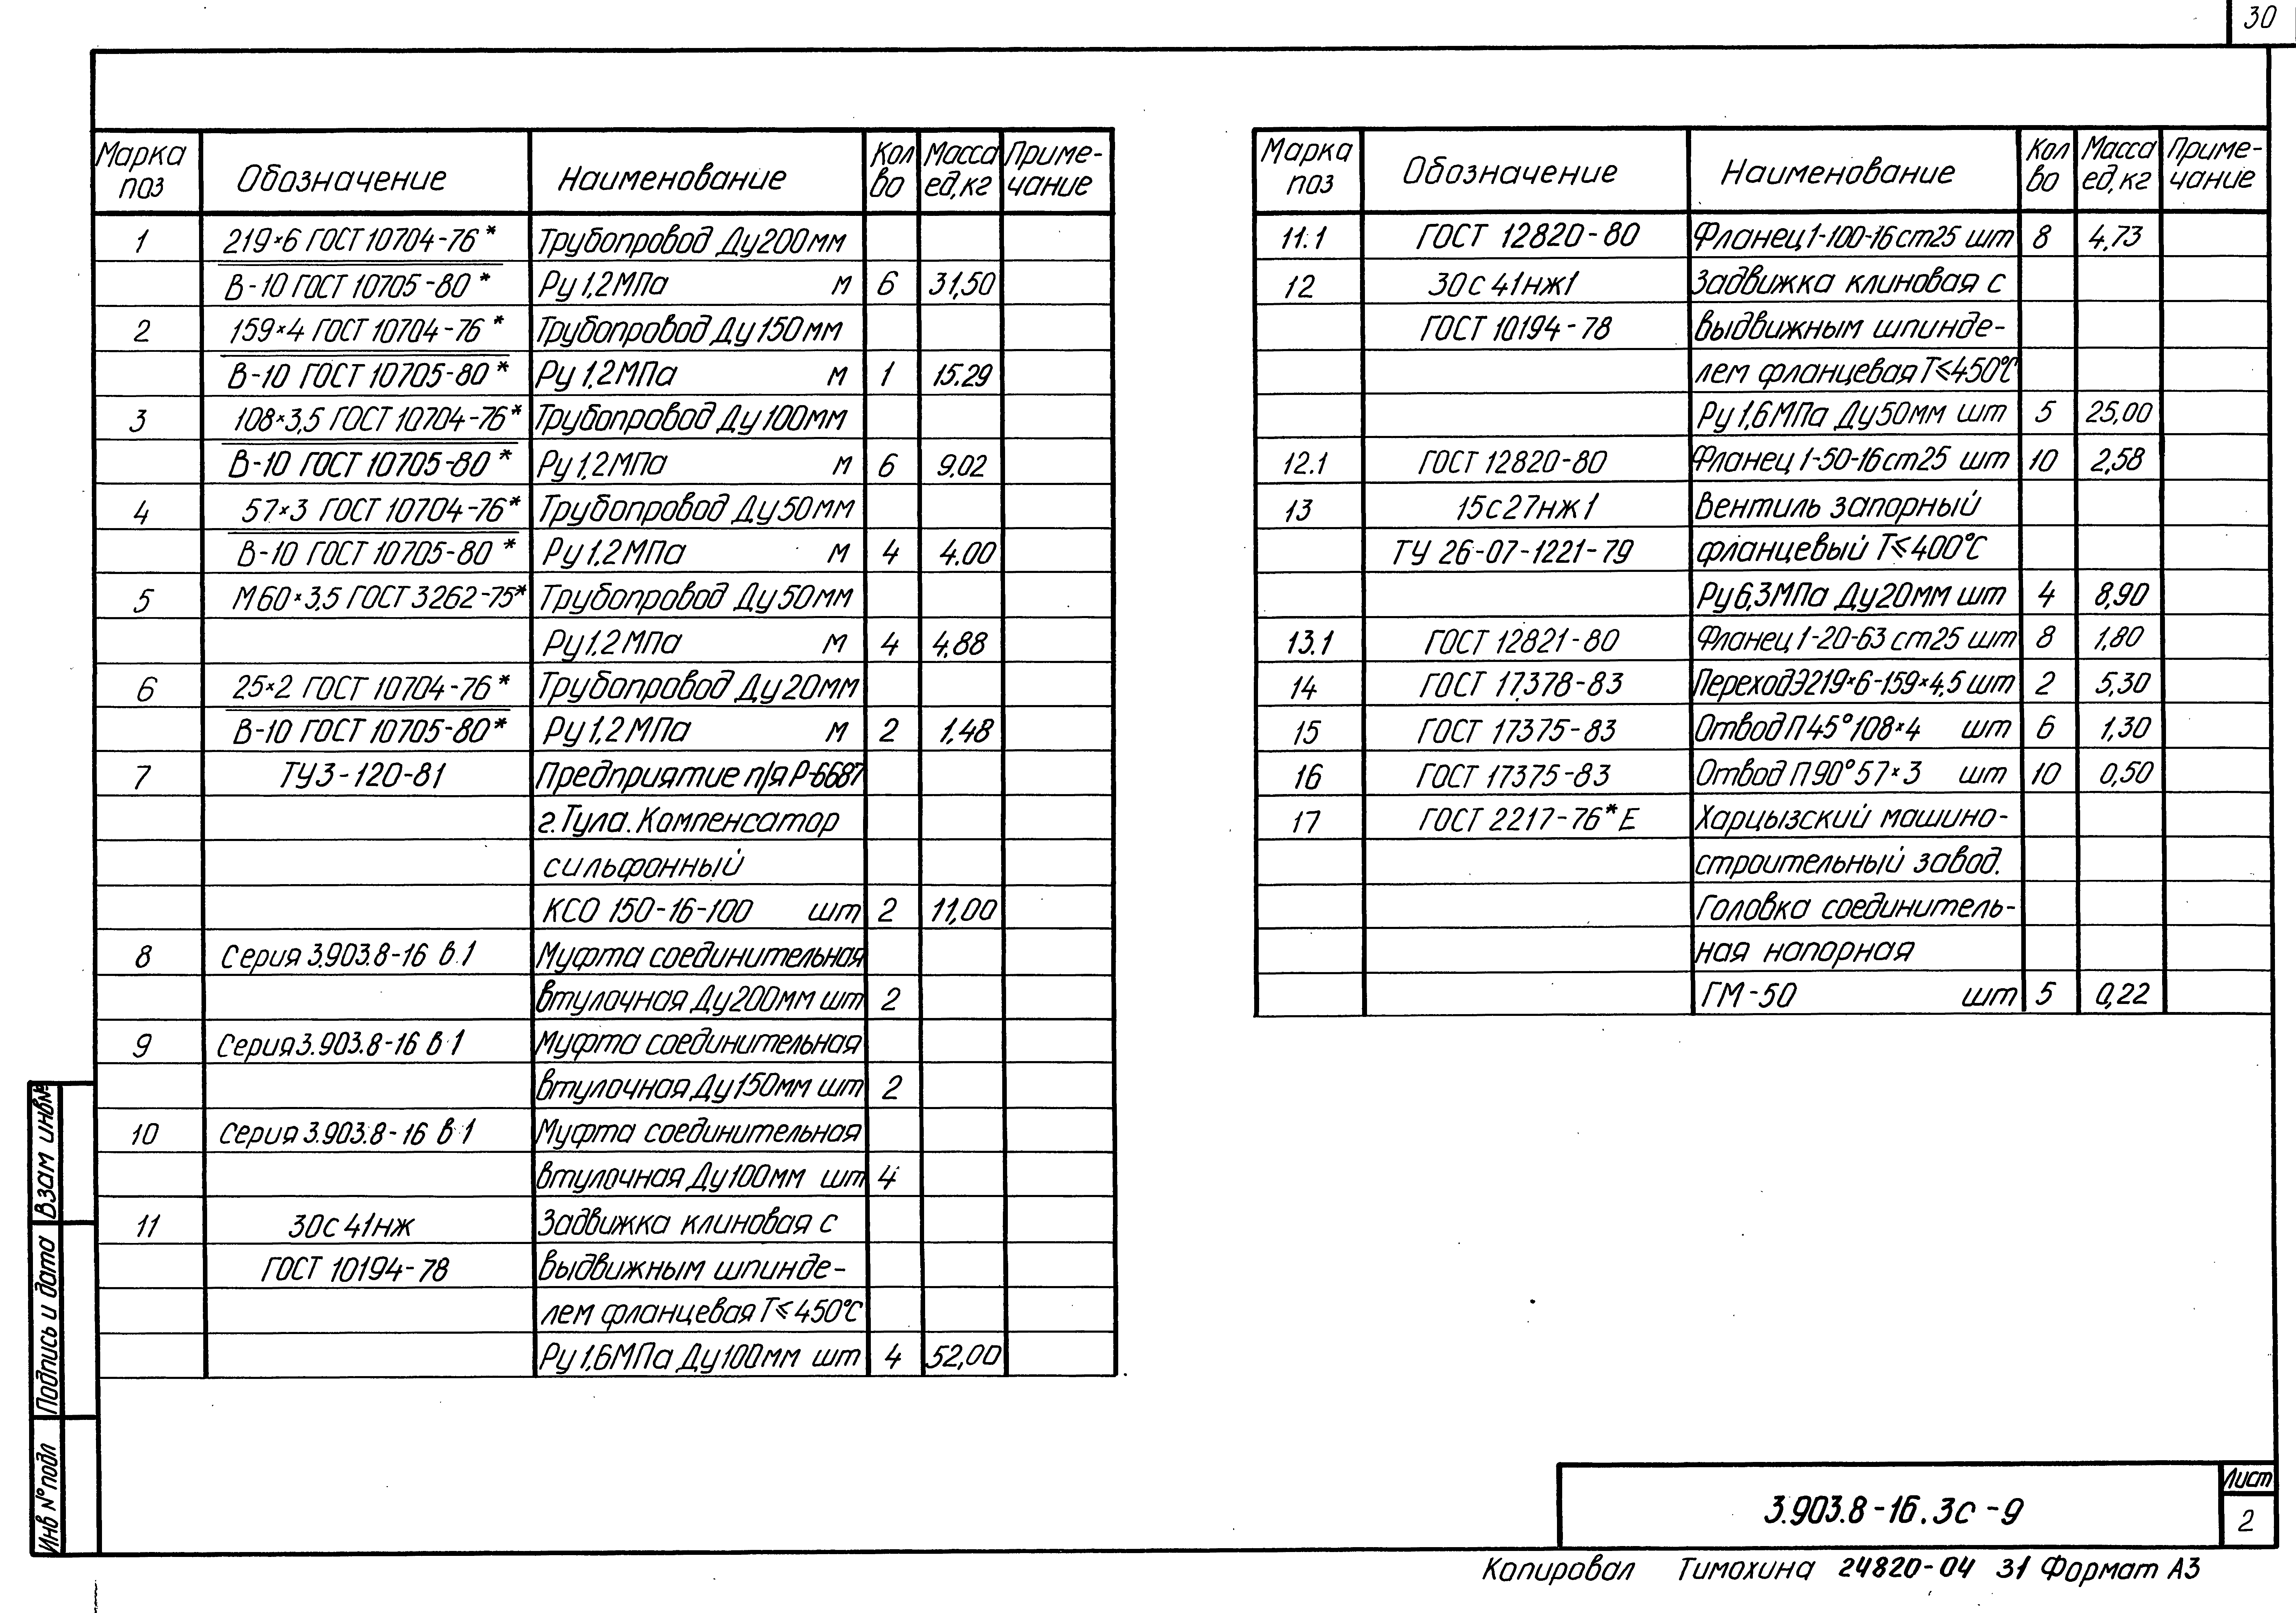 30
Марка поз | Обозначение | Наименование | Кол во | Масса ед,кг | Приме-чание
1 | 219×6 ГОСТ 10704-76* | Трубопровод Ду200мм
В-10 ГОСТ 10705-80* | Ру 1,2МПа м | 6 | 31,50
2 | 159×4 ГОСТ 10704-76* | Трубопровод Ду150мм
В-10 ГОСТ 10705-80* | Ру 1,2МПа м | 1 | 15.29
3 | 108×3,5 ГОСТ 10704-76* | Трубопровод Ду100мм
В-10 ГОСТ 10705-80* | Ру 1,2МПа м | 6 | 9.02
4 | 57×3 ГОСТ 10704-76* | Трубопровод Ду50мм
В-10 ГОСТ 10705-80* | Ру 1,2МПа м | 4 | 4.00
5 | М60×3,5 ГОСТ 3262-75* | Трубопровод Ду50мм
Ру 1,2МПа м | 4 | 4.88
6 | 25×2 ГОСТ 10704-76* | Трубопровод Ду20мм
В-10 ГОСТ 10705-80* | Ру 1,2МПа м | 2 | 1,48
7 | ТУ3-120-81 | Предприятие п/я Р-6687
г.Тула. Компенсатор
сильфонный
КСО 150-16-100 шт | 2 | 11,00
8 | Серия 3.903.8-16 в.1 | Муфта соединительная
втулочная Ду200мм шт | 2
9 | Серия 3.903.8-16 в.1 | Муфта соединительная
втулочная Ду150мм шт | 2
10 | Серия 3.903.8-16 в.1 | Муфта соединительная
втулочная Ду100мм шт | 4
11 | 30с 41нж | Задвижка клиновая с
ГОСТ 10194-78 | выдвижным шпинде-
лем фланцевая Т≤450°С
Ру 1,6МПа Ду100мм шт | 4 | 52,00
Марка поз | Обозначение | Наименование | Кол во | Масса ед,кг | Приме-чание
11.1 | ГОСТ 12820-80 | Фланец 1-100-16 ст25 шт | 8 | 4,73
12 | 30с 41нж1 | Задвижка клиновая с
ГОСТ 10194-78 | выдвижным шпинде-
лем фланцевая Т≤450°С
Ру 1,6МПа Ду50мм шт | 5 | 25,00
12.1 | ГОСТ 12820-80 | Фланец 1-50-16 ст25 шт | 10 | 2,58
13 | 15с27нж1 | Вентиль запорный
ТУ 26-07-1221-79 | фланцевый Т≤400°С
Ру 6,3МПа Ду20мм шт | 4 | 8,90
13.1 | ГОСТ 12821-80 | Фланец 1-20-63 ст25 шт | 8 | 1,80
14 | ГОСТ 17378-83 | Переход Э219×6-159×4,5 шт | 2 | 5,30
15 | ГОСТ 17375-83 | Отвод П45°108×4 шт | 6 | 1,30
16 | ГОСТ 17375-83 | Отвод П90°57×3 шт | 10 | 0,50
17 | ГОСТ 2217-76*Е | Харцызский машино-
строительный завод.
Головка соединитель-
ная напорная
ГМ-50 шт | 5 | 0,22
Взам инв№
Подпись и дата
Инв №подл
3.903.8-16.3с-9
Лист
2
Копировал Тимохина 24820-04 31 Формат А3